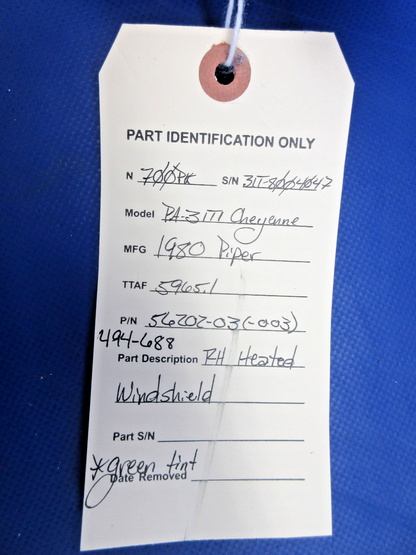 PART IDENTIFICATION ONLY
N 700PK S/N 31T-8004047
Model PA-31T Cheyenne
MFG 1980 Piper
TTAF 5965.1
P/N 56202-03(-003)
494-688
Part Description RH Heated
Windshield
Part S/N
*green tint
Date Removed